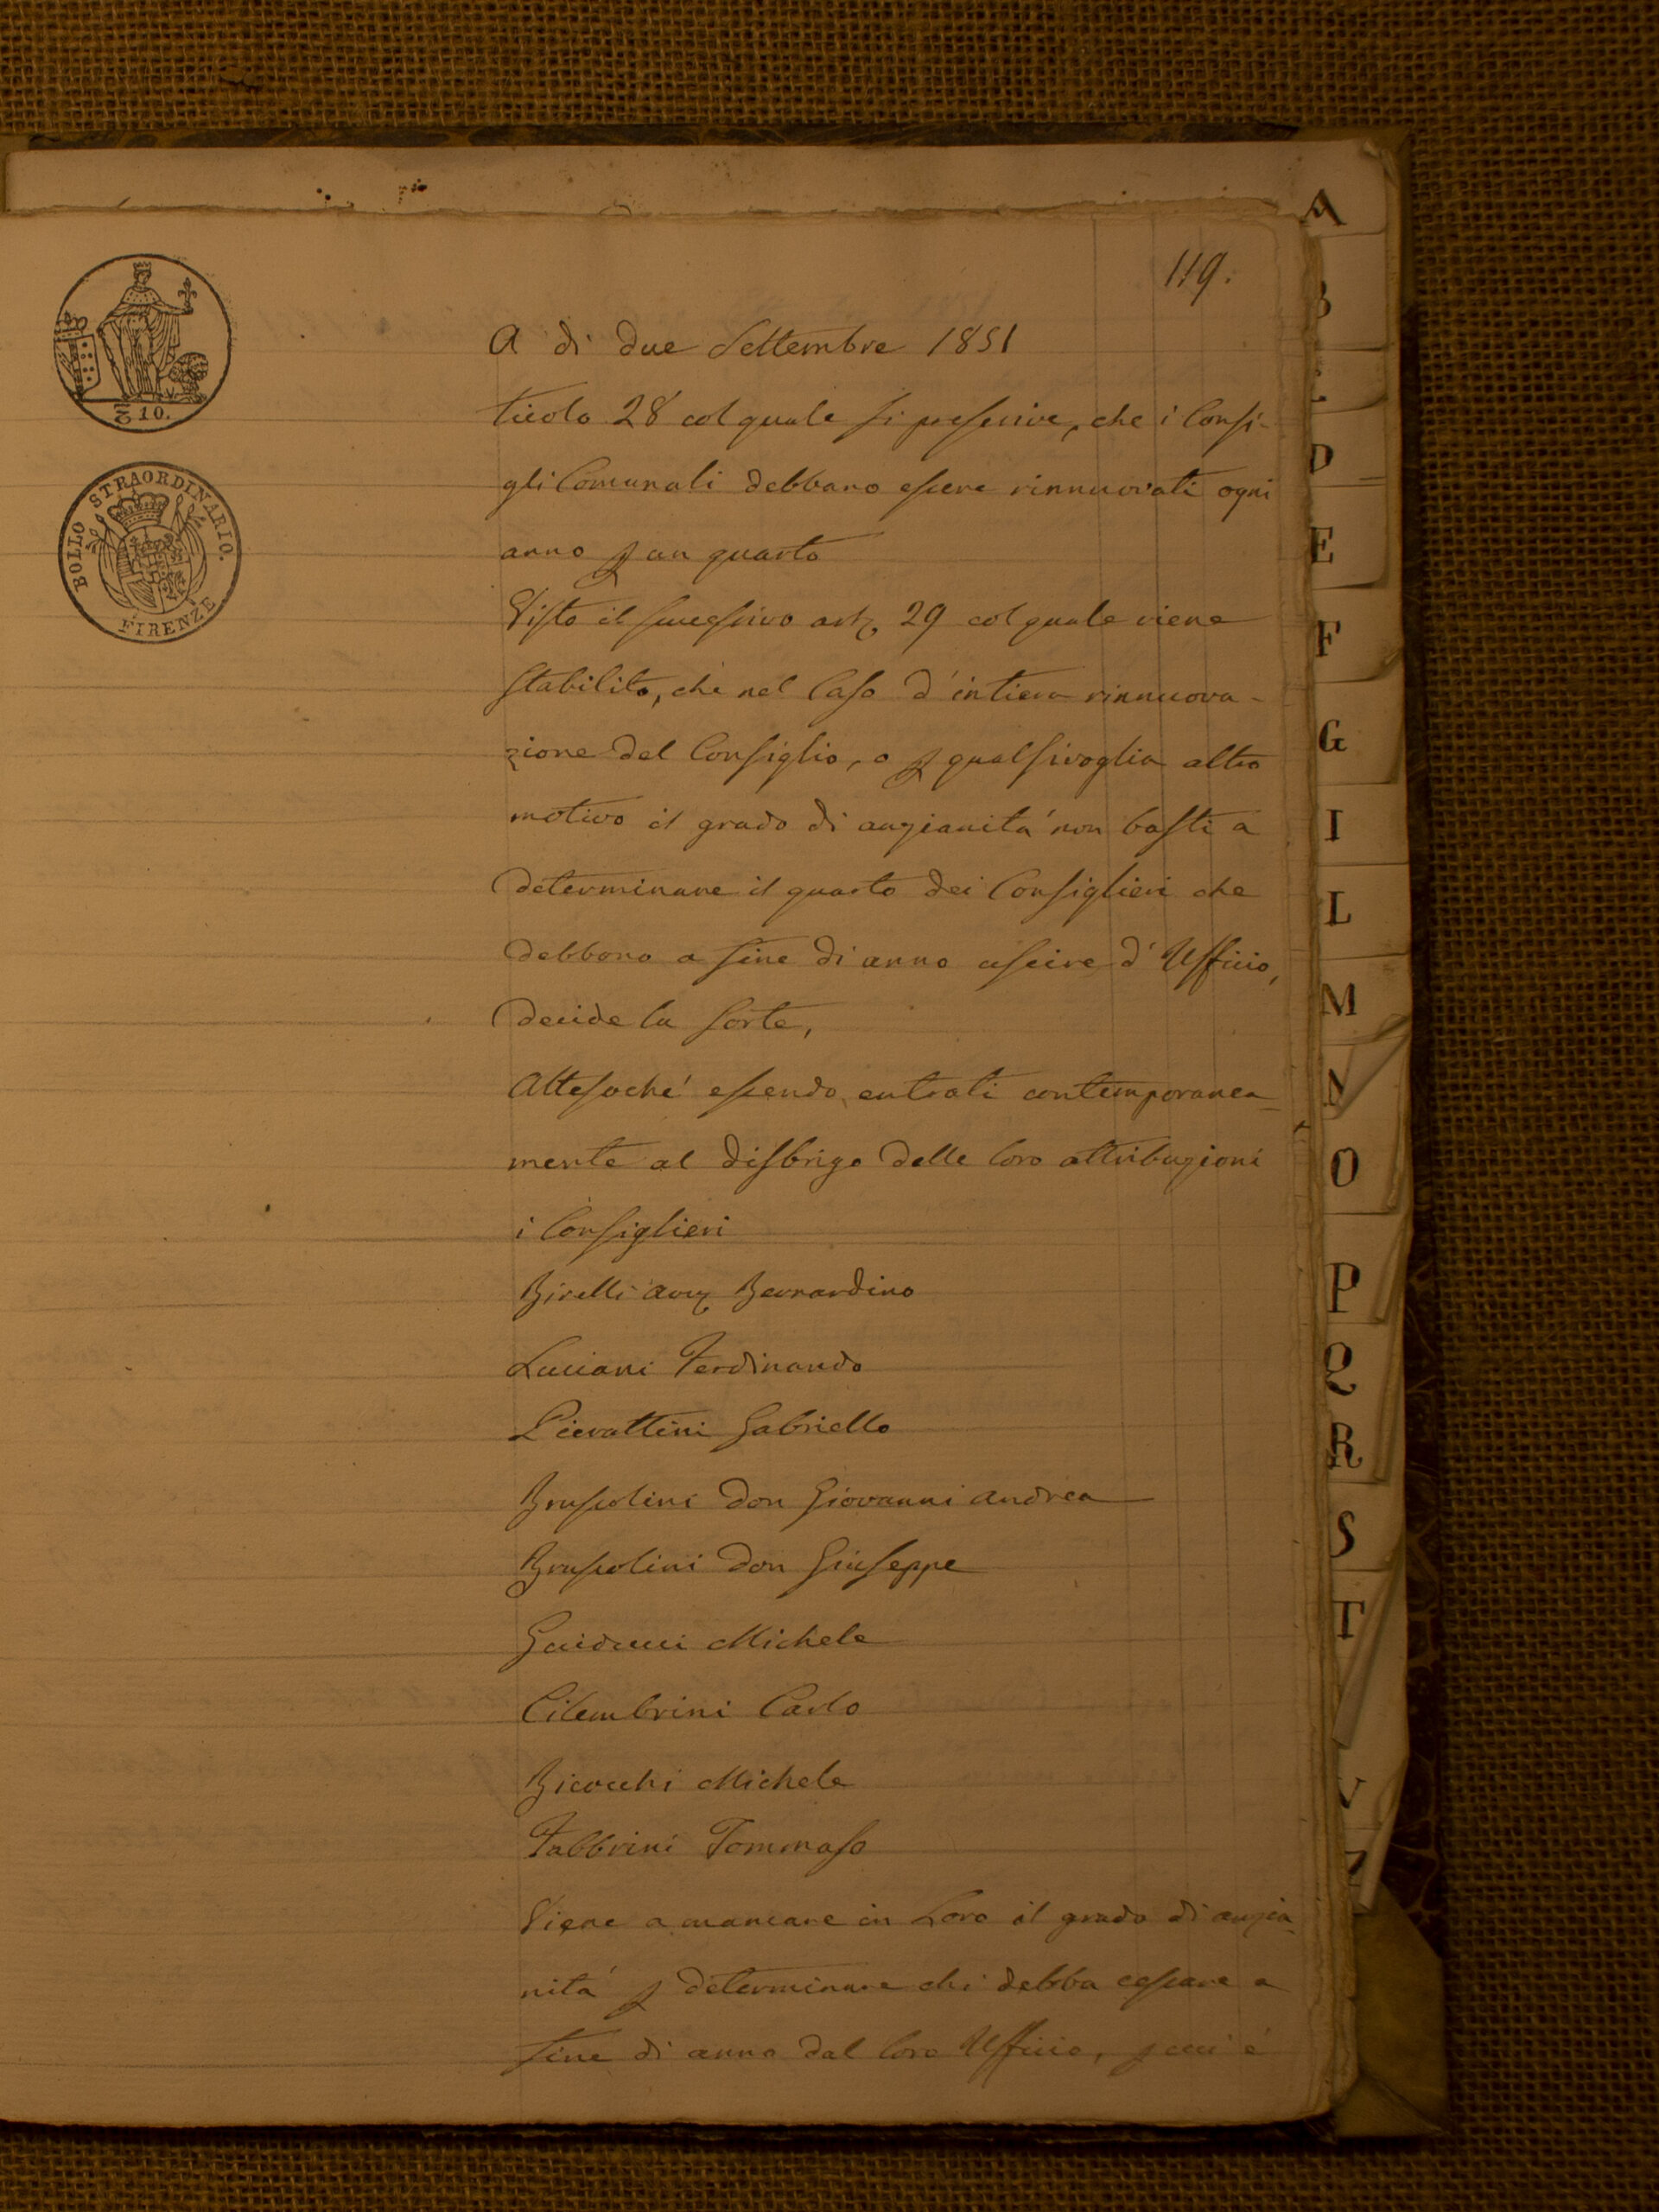 119.
A di due Settembre 1851
ticolo 28 col quale si prescrive, che i Consi-
gli Comunali debbano essere rinnuovati ogni
anno p un quarto
Visto il successivo art. 29 col quale viene
stabilito, che nel Caso d'intiera rinnuova-
zione del Consiglio, o p qualsivoglia altro
motivo il grado di anzianitá non basti a
determinare il quarto dei Consiglieri che
debbono a fine di anno uscire d'Ufficio,
decide la sorte,
Attesoché essendo entrati contemporanea-
mente al disbrigo delle loro attribuzioni
i Consiglieri
Birelli Bernardino
Luciani Ferdinando
Pierattini Gabriello
Bruscolini Don Giovanni Andrea
Bruscolini Don Giuseppe
Guiducci Michele
Cilembrini Carlo
Bicocchi Michele
Fabbrini Tommaso
Viene a mancare in Loro il grado di anzia-
nitá p determinare chi debba cessare a
fine di anno dal loro Ufficio, é
10.
BOLLO STRAORDINARIO.
FIRENZE
A
B
D
E
F
G
I
L
M
N
O
P
Q
R
S
T
V
Z